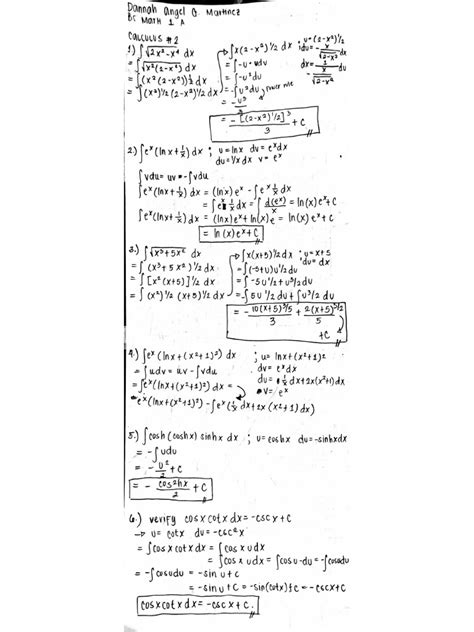 Dannah Angel G. Martinez
BS Math 1 A
CALCULUS #2
1) ∫√2x²-x⁴ dx → ∫x(2-x²)½ dx ; u=(2-x²)½
= ∫√x²(2-x²) dx = ∫-u·udu
= ∫(x²(2-x²))½ dx = ∫-u²du
= ∫(x²)½(2-x²)½ dx = -∫u²du power rule
= -u³/3
= -[(2-x²)½]³/3 + C
2) ∫eˣ(lnx+1/x) dx ; u=lnx dv=eˣdx
du=1/x dx v=eˣ
∫vdu= uv-∫vdu
∫eˣ(lnx+1/x) dx = (lnx)eˣ-∫eˣ1/x dx
= ∫eˣ1/x dx = ∫d(eˣ)/x = ln(x)eˣ+C
∫eˣ(lnx+1/x) dx = (lnx)eˣ+ln(x)e = ln(x)eˣ+C
= ln(x)eˣ+C
3.) ∫√x³+5x² dx → ∫x(x+5)½ dx ; u=x+5
= ∫(x³+5x²)½ dx = ∫(-5+u)u½ du du=dx
= ∫[x²(x+5)]½ dx = ∫-5u½+u3/2 du
= ∫(x²)½(x+5)½ dx = -∫5u½ du+∫u3/2 du
= -10(x+5)3/5/3 + 2(x+5)5/2/5
+C
4.) ∫eˣ(lnx+(x²+1)²) dx ; u= lnx+(x²+1)²
= ∫udv = uv-∫vdu dv= eˣdx
= ∫eˣ(lnx+(x²+1)²) dx = du= 1/x dx+2x(x²+1)dx
v= eˣ
eˣ(lnx+(x²+1)²)-∫eˣ(1/x dx+2x(x²+1)dx)
5.) ∫cosh(coshx) sinhx dx ; u=coshx du=-sinhxdx
= -∫udu
= -u²/2+C
= -cos2hx/2 + C
6.) verify cosxcotxdx=-cscx+C
→ u= cotx du=-csc²x
= ∫cosxcotxdx = ∫cosxudx
= ∫cosxudx = ∫cosu-du=-∫cosudu
= -∫cosudu = -sinu+c
= -sinu+C = -sin(cotx)+C = -cscx+C
cosxcotxdx=-cscx+C.